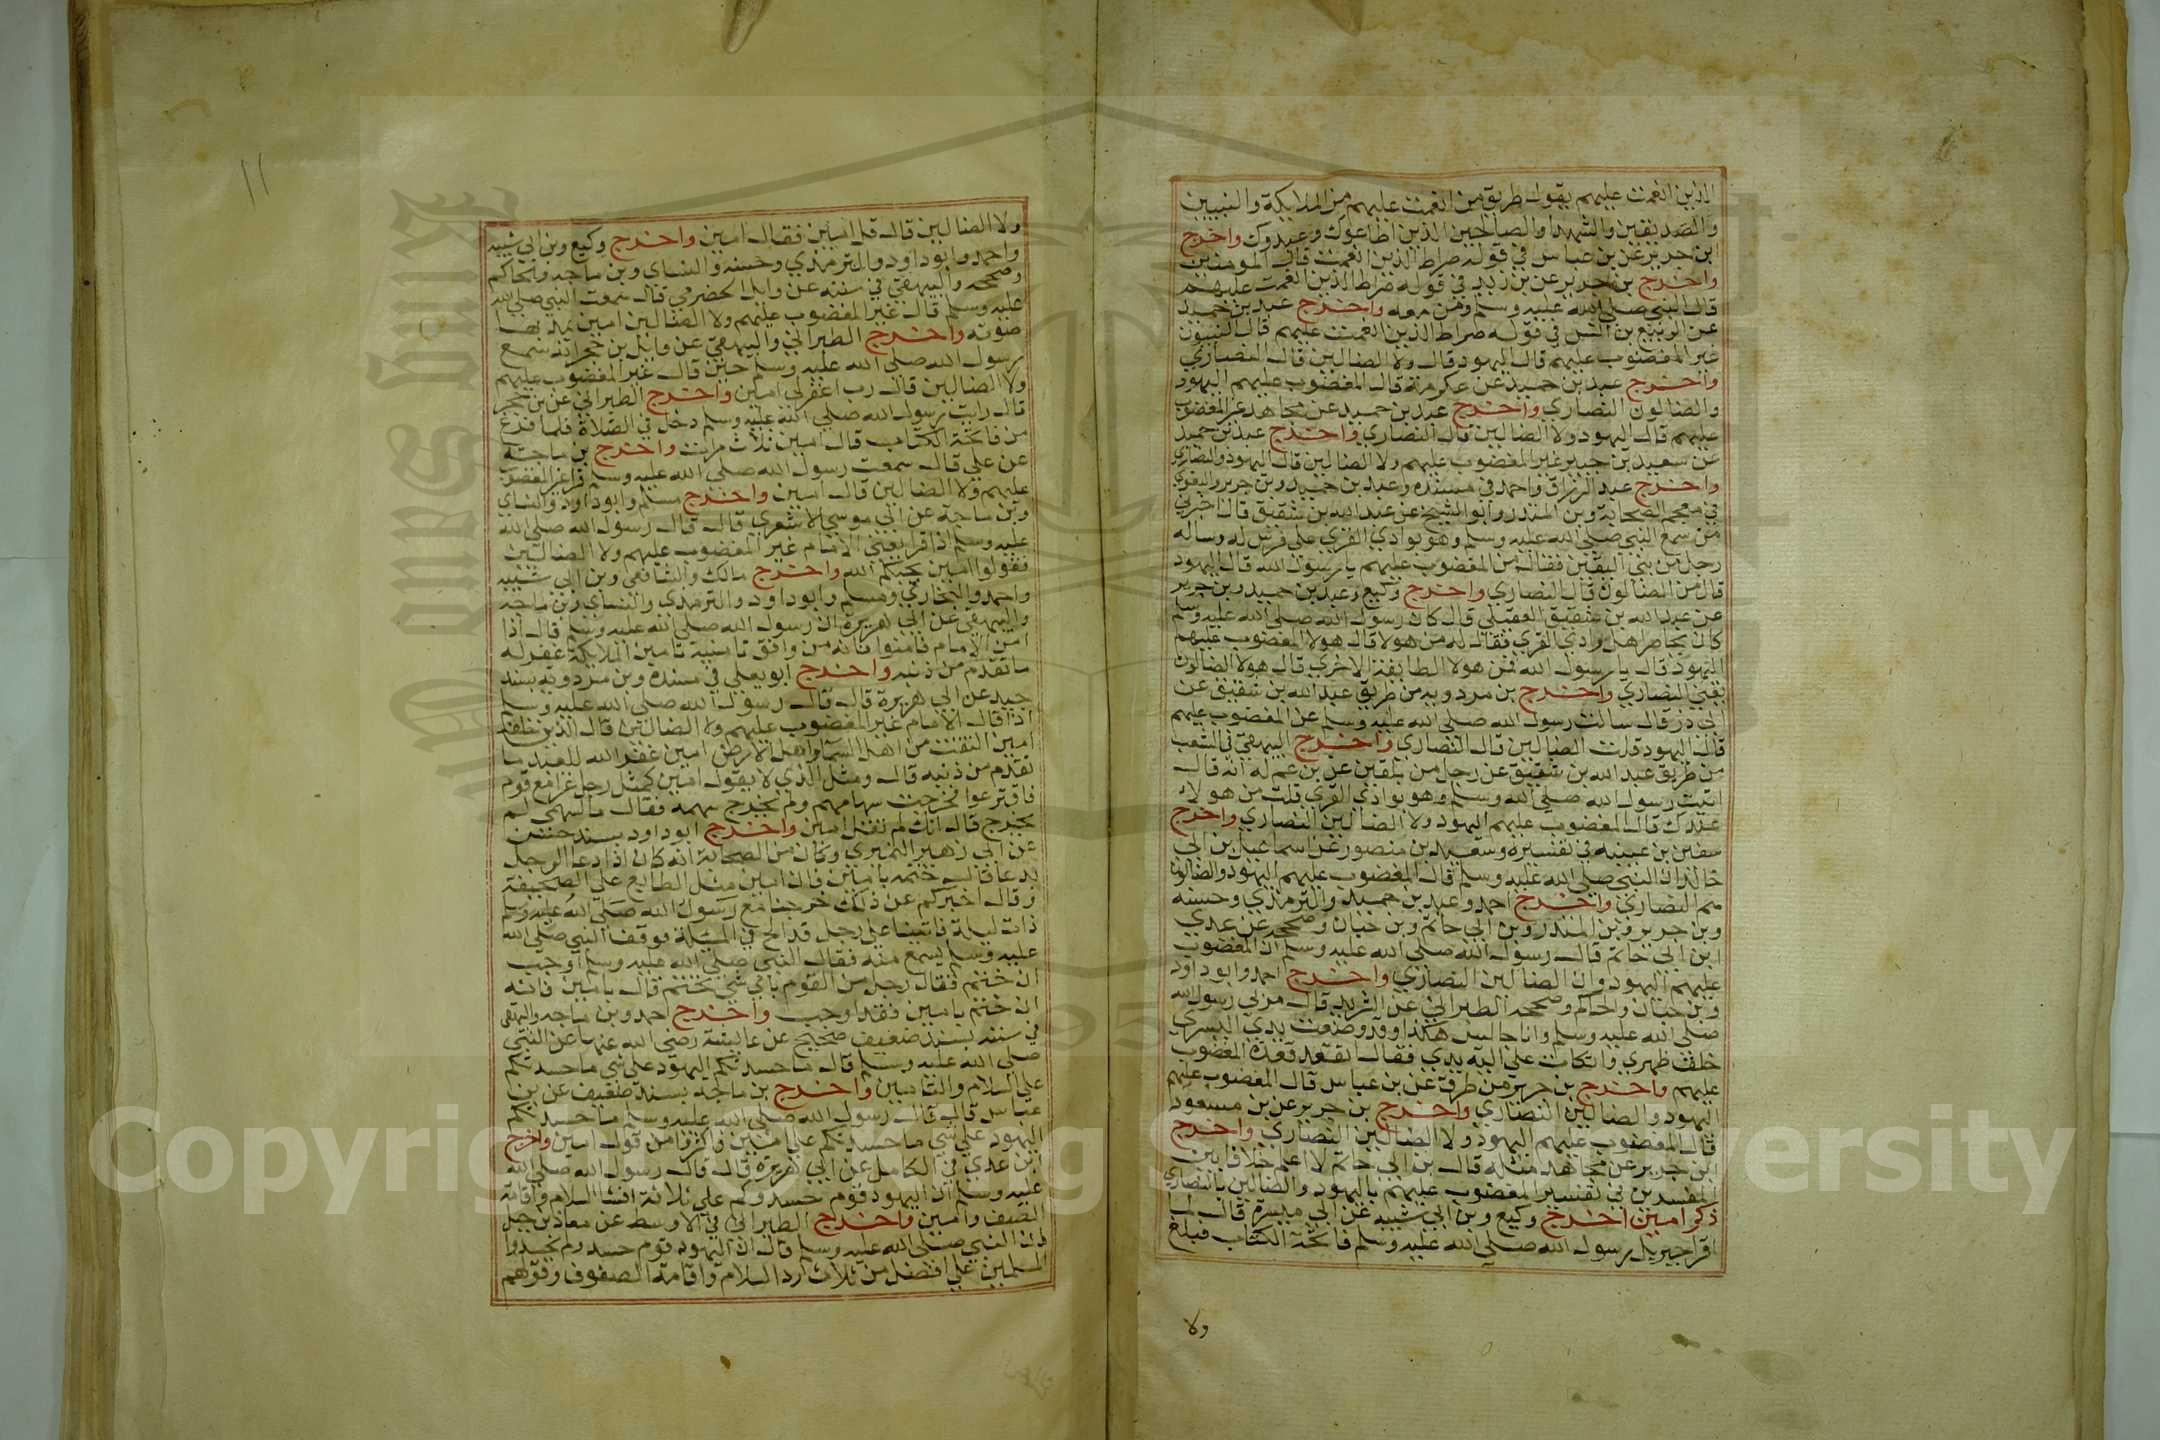 الذين انعمت عليهم يقول طريق من انعمت عليهم من الملايكة والنبيين
والصديقين والشهدا والصالحين الذين اطاعوك وعبدوك واخرج
ابن جرير عن بن عباس في قوله صراط الذين انعمت قال المومنين
واخرج بن جرير عن بن زيد في قوله صراط الذين انعمت عليهم
قال النبي صلي الله عليه وسلم ومن معه واخرج عبد بن حميد
عن الربيع بن انس في قوله صراط الذين انعمت عليهم قال النبيون
غير المغضوب عليهم قال اليهود قال ولا الضالين قال النصاري
واخرج عبد بن حميد عن عكرمة قال المغضوب عليهم اليهود
والضالون النصاري واخرج عبد بن حميد عن مجاهد غير المغضوب
عليهم قال اليهود ولا الضالين قال النصاري واخرج عبد بن حميد
عن سعيد بن جبير غير المغضوب عليهم ولا الضالين قال اليهود والنصاري
واخرج عبد الرزاق واحمد في مسنده وعبد بن حميد وبن جرير والبغوي
في معجم الصحابة وبن المنذر وابو الشيخ عن عبد الله بن شقيق قال اخبرني
من سمع النبي صلي الله عليه وسلم وهو بوادي القري علي فرس له وساله
رجل من بني القين فقال من المغضوب عليهم يا رسول الله قال اليهود
قال من الضالون قال النصاري واخرج وكيع وعبد بن حميد وبن جرير
عن عبد الله بن شقيق العقيلي قال كان رسول الله صلي الله عليه وسلم
كان يحاصر اهل وادي القري فقال له من هولا قال هولا المغضوب عليهم
اليهود قال يا رسول الله فمن هولا الطايفة الاخري قال هولا الضالون
يعني النصاري واخرج بن مردويه من طريق عبد الله بن شقيق عن
ابي ذر قال سالت رسول الله صلي الله عليه وسلم عن المغضوب عليهم
قال اليهود قلت الضالين قال النصاري واخرج البيهقي في الشعب
من طريق عبد الله بن شقيق عن رجل من بلقين عن بن عم له انه قال
اتيت رسول الله صلي الله وسلم وهو بوادي القري قلت من هولاء
عندك قال المغضوب عليهم اليهود ولا الضالين النصاري واخرج
سفين بن عيينه في تفسيره وسعيد بن منصور عن اسماعيل بن ابي
خالد ان النبي صلي الله عليه وسلم قال المغضوب عليهم اليهود والضالون
هم النصاري واخرج احمد وعبد بن حميد والترمذي وحسنه
وبن جرير وبن المنذر وبن ابي حاتم وبن حبان وصححه عن عدي
ابن ابي حاتم قال رسول الله صلي الله عليه وسلم ان المغضوب
عليهم اليهود وان الضالين النصاري واخرج احمد وابو داود
وبن حبان والحاكم وصححه الطبراني عن الشريد قال مر بي رسول الله
صلي الله عليه وسلم وانا جالس هكذا وقد وضعت يدي اليسري
خلف ظهري واتكات علي الية يدي فقال اتقعد قعدة المغضوب
عليهم واخرج بن جريج من طرق عن بن عباس قال المغضوب عليهم
اليهود والضالين النصاري واخرج بن جرير عن بن مسعود
قال المغضوب عليهم اليهود ولا الضالين النصاري واخرج
ابن جرير عن مجاهد مثله قال بن ابي حاتم لا اعلم خلافا بين
المفسدين في تفسير المغضوب عليهم باليهود والضالين بالنصاري
ذكر امين اخرج وكيع وبن ابي شيبه عن ابي ميسرة قال لما
اقرا جبريل رسول الله صلي الله عليه وسلم فاتحة الكتاب فبلغ
ولا
١١
ولا الضالين قال قل امين فقال امين واخرج وكيع وبن ابي شيبه
واحمد وابو داود والترمذي وحسنه والنساي وبن ماجه والحاكم
وصححه والبيهقي في سننه عن وايل الحضرمي قال سمعت النبي صلي الله
عليه وسلم قال غير المغضوب عليهم ولا الضالين امين يمد بها
صوته واخرج الطبراني والبيهقي عن وايل بن حجر انه سمع
رسول الله صلي الله عليه وسلم حين قال غير المغضوب عليهم
ولا الضالين قال رب اغفر لي امين واخرج الطبراني عن بن حجر
قال رايت رسول الله صلي الله عليه وسلم دخل في الصلاة فلما فرغ
من فاتحة الكتاب قال امين ثلاث مرات واخرج بن ماجة
عن علي قال سمعت رسول الله صلي الله عليه وسلم قرا غير المغضوب
عليهم ولا الضالين قال امين واخرج مسلم وابو داود والنساي
وبن ماجة عن ابي موسي الاشعري قال قال رسول الله صلي الله
عليه وسلم اذا قرا يعني الامام غير المغضوب عليهم ولا الضالين
فقولوا امين يحبكم الله واخرج مالك والشافعي وبن ابي شيبه
واحمد والبخاري ومسلم وابو داود والترمذي والنساي وبن ماجه
والبيهقي عن ابي هريرة ان رسول الله صلي الله عليه وسلم قال اذا
امن الامام فامنوا فانه من وافق تامينه تامين الملايكة غفر له
ما تقدم من ذنبه واخرج ابو يعلي في مسنده وبن مردويه بسند
جيد عن ابي هريرة قال قال رسول الله صلي الله عليه وسلم
اذا قال الامام غير المغضوب عليهم ولا الضالين قال الذين خلفه
امين التقت من اهل السما واهل الارض امين غفر الله للعبد ما
تقدم من ذنبه قال ومثل الذي لا يقول امين كمثل رجل غزا مع قوم
فاقترعوا فخرجت سهامهم ولم يخرج سهمه فقال ما لسهمي لم
يخرج قال انك لم تقل امين واخرج ابو داود بسند حسن
عن ابي زهير النميري وكان من الصحابة انه كان اذا دعا الرجل
بدعا قال ختمه بامين فان امين مثل الطابع علي الصحيفة
وقال اخبركم عن ذلك خرجنا مع رسول الله صلي الله عليه وسلم
ذات ليلة فاتينا علي رجل قد الح في المسئلة فوقف النبي صلي الله
عليه وسلم يسمع منه فقال النبي صلي الله عليه وسلم اوجب
ان ختم فقال رجل من القوم باي شي يختم قال بامين فانه
ان ختم بامين فقد اوجب واخرج احمد وبن ماجه والبيهقي
في سننه بسند ضعيف صحيح عن عايشة رضي الله عنها عن النبي
صلي الله عليه وسلم قال ما حسدتكم اليهود علي شي ما حسدتكم
علي السلام والتامين واخرج بن ماجة بسند ضعيف عن بن
عباس قال قال رسول الله صلي الله عليه وسلم ما حسدتكم
اليهود علي شي ما حسدتكم علي امين فاكثروا من قول امين واخرج
ابن عدي في الكامل عن ابي هريرة قال قال رسول الله صلي الله
عليه وسلم ان اليهود قوم حسد وكم علي ثلاثة افشا السلام واقامة
الصف وامين واخرج الطبراني في الاوسط عن معاذ بن جبل
ان النبي صلي الله عليه وسلم قال ان اليهود قوم حسد ولم يحسدوا
المسلمين علي افضل من ثلاث رد السلام واقامة الصفوف وقولهم
King Saud University
1957
Copyright © King Saud University